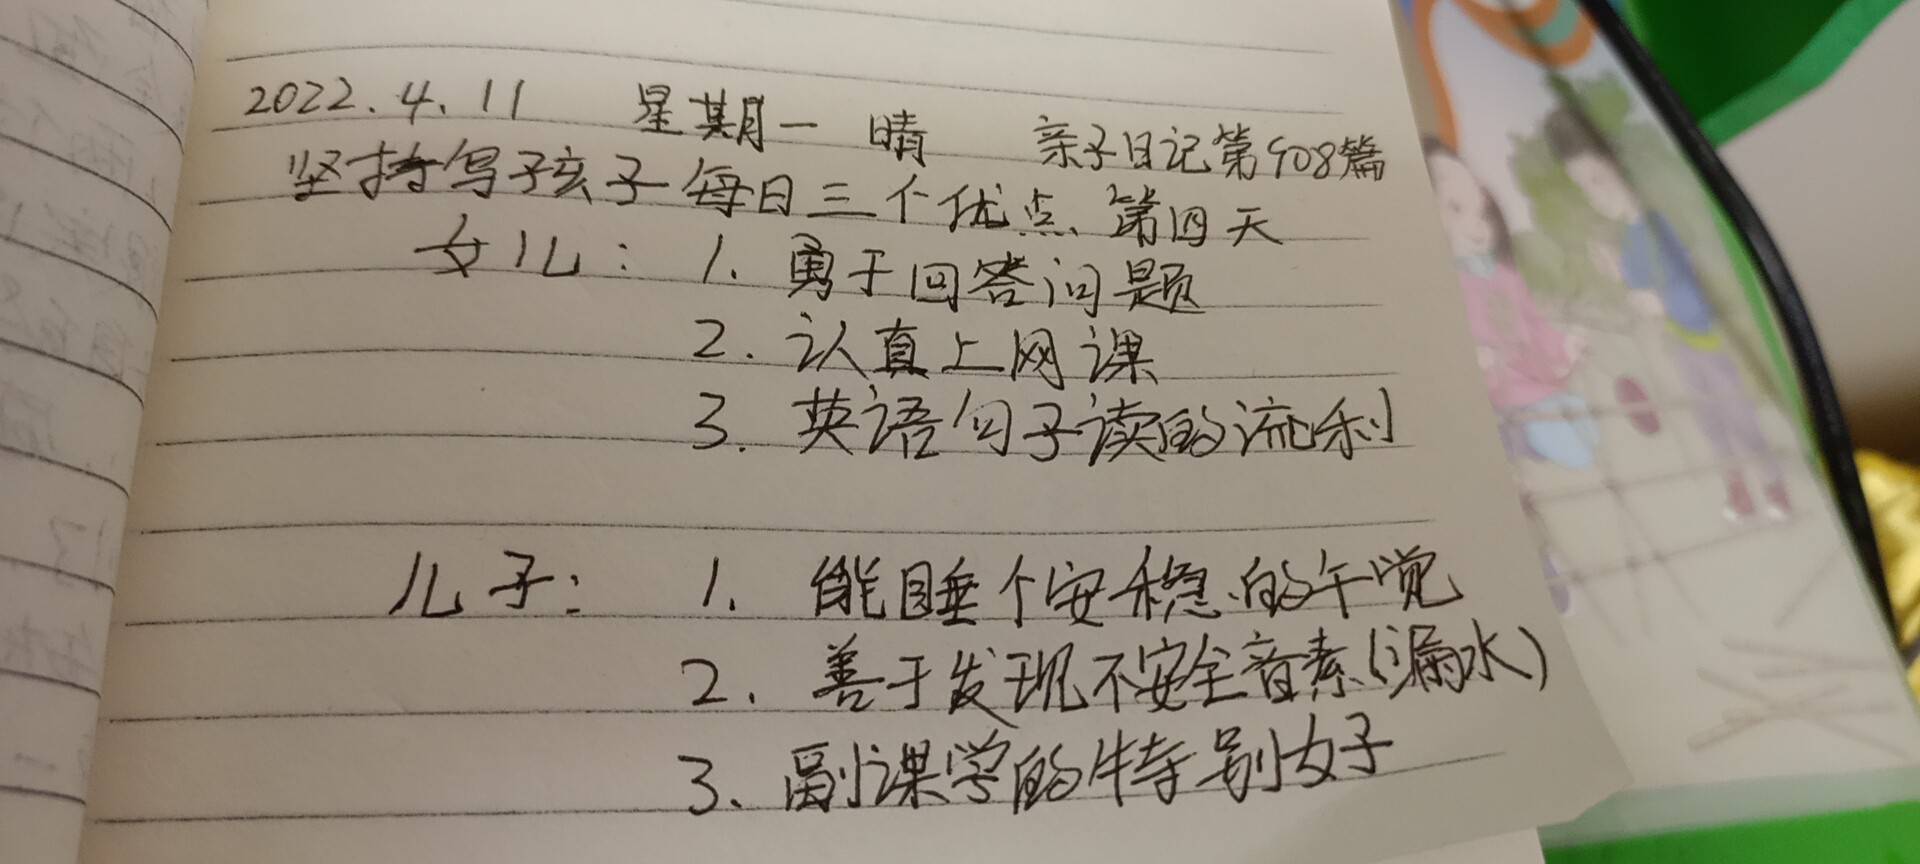 2022.4.11 星期一 晴 亲子日记第908篇
坚持写孩子每日三个优点 第四天
女儿：1. 勇于回答问题
2. 认真上网课
3. 英语句子读的流利
儿子：1. 能睡个安稳的午觉
2. 善于发现不安全音素(漏水)
3. 副课学的特别好